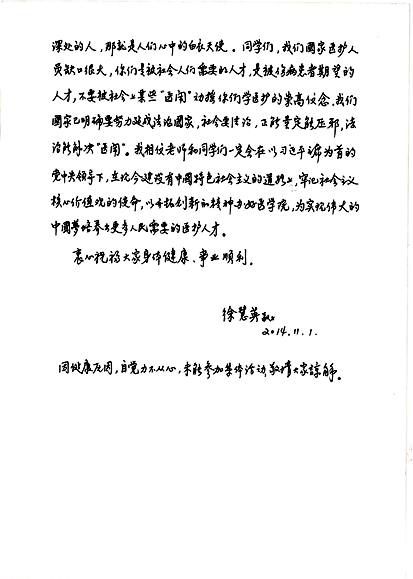 深处的人，那就是人们心中的白衣天使。同学们，我们国家医护人
员缺口很大，你们是被社会人们需要的人才，是被伤病患者期望的
人才，不要被社会上某些“医闹”动摇你们学医护的崇高信念。我们
国家已明确要努力建成法治国家，社会要法治，正能量定能压邪，法
治能解决“医闹”。我相信老师和同学们一定会在以习近平主席为首的
党中央领导下，在北今建设有中国特色社会主义的道路上，牢记社会主义
核心价值观的使命，以开拓创新的精神办好医学院，为实现伟大的
中国梦培养出更多人民需要的医护人才。
衷心祝福大家身体健康、事业顺利。
徐慧英敬上
2014.11.1.
因健康原因，自觉力不从心，未能参加集体活动，敬请大家谅解。